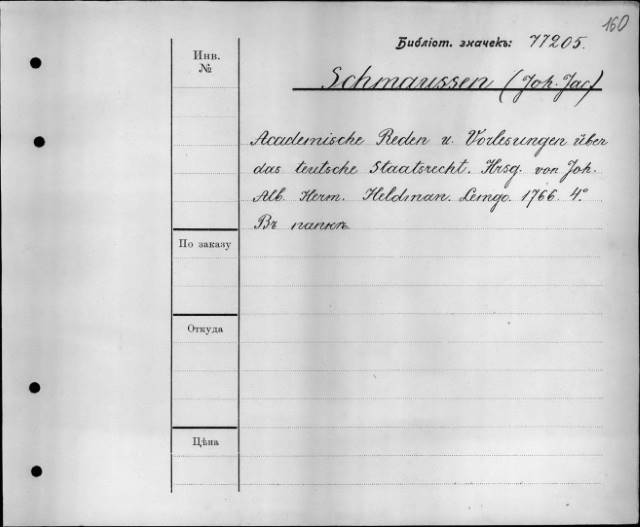 160
Библіот. значекъ: 77205.
Инв.
№
Schmaussen (Joh. Jac)
Academische Reden u. Vorlesungen über
das teutsche Staatsrecht. Hrsg. von Joh.
Alb. Herm. Heldman. Lemgo. 1766. 4°
Въ папкѣ
По заказу
Откуда
Цѣна